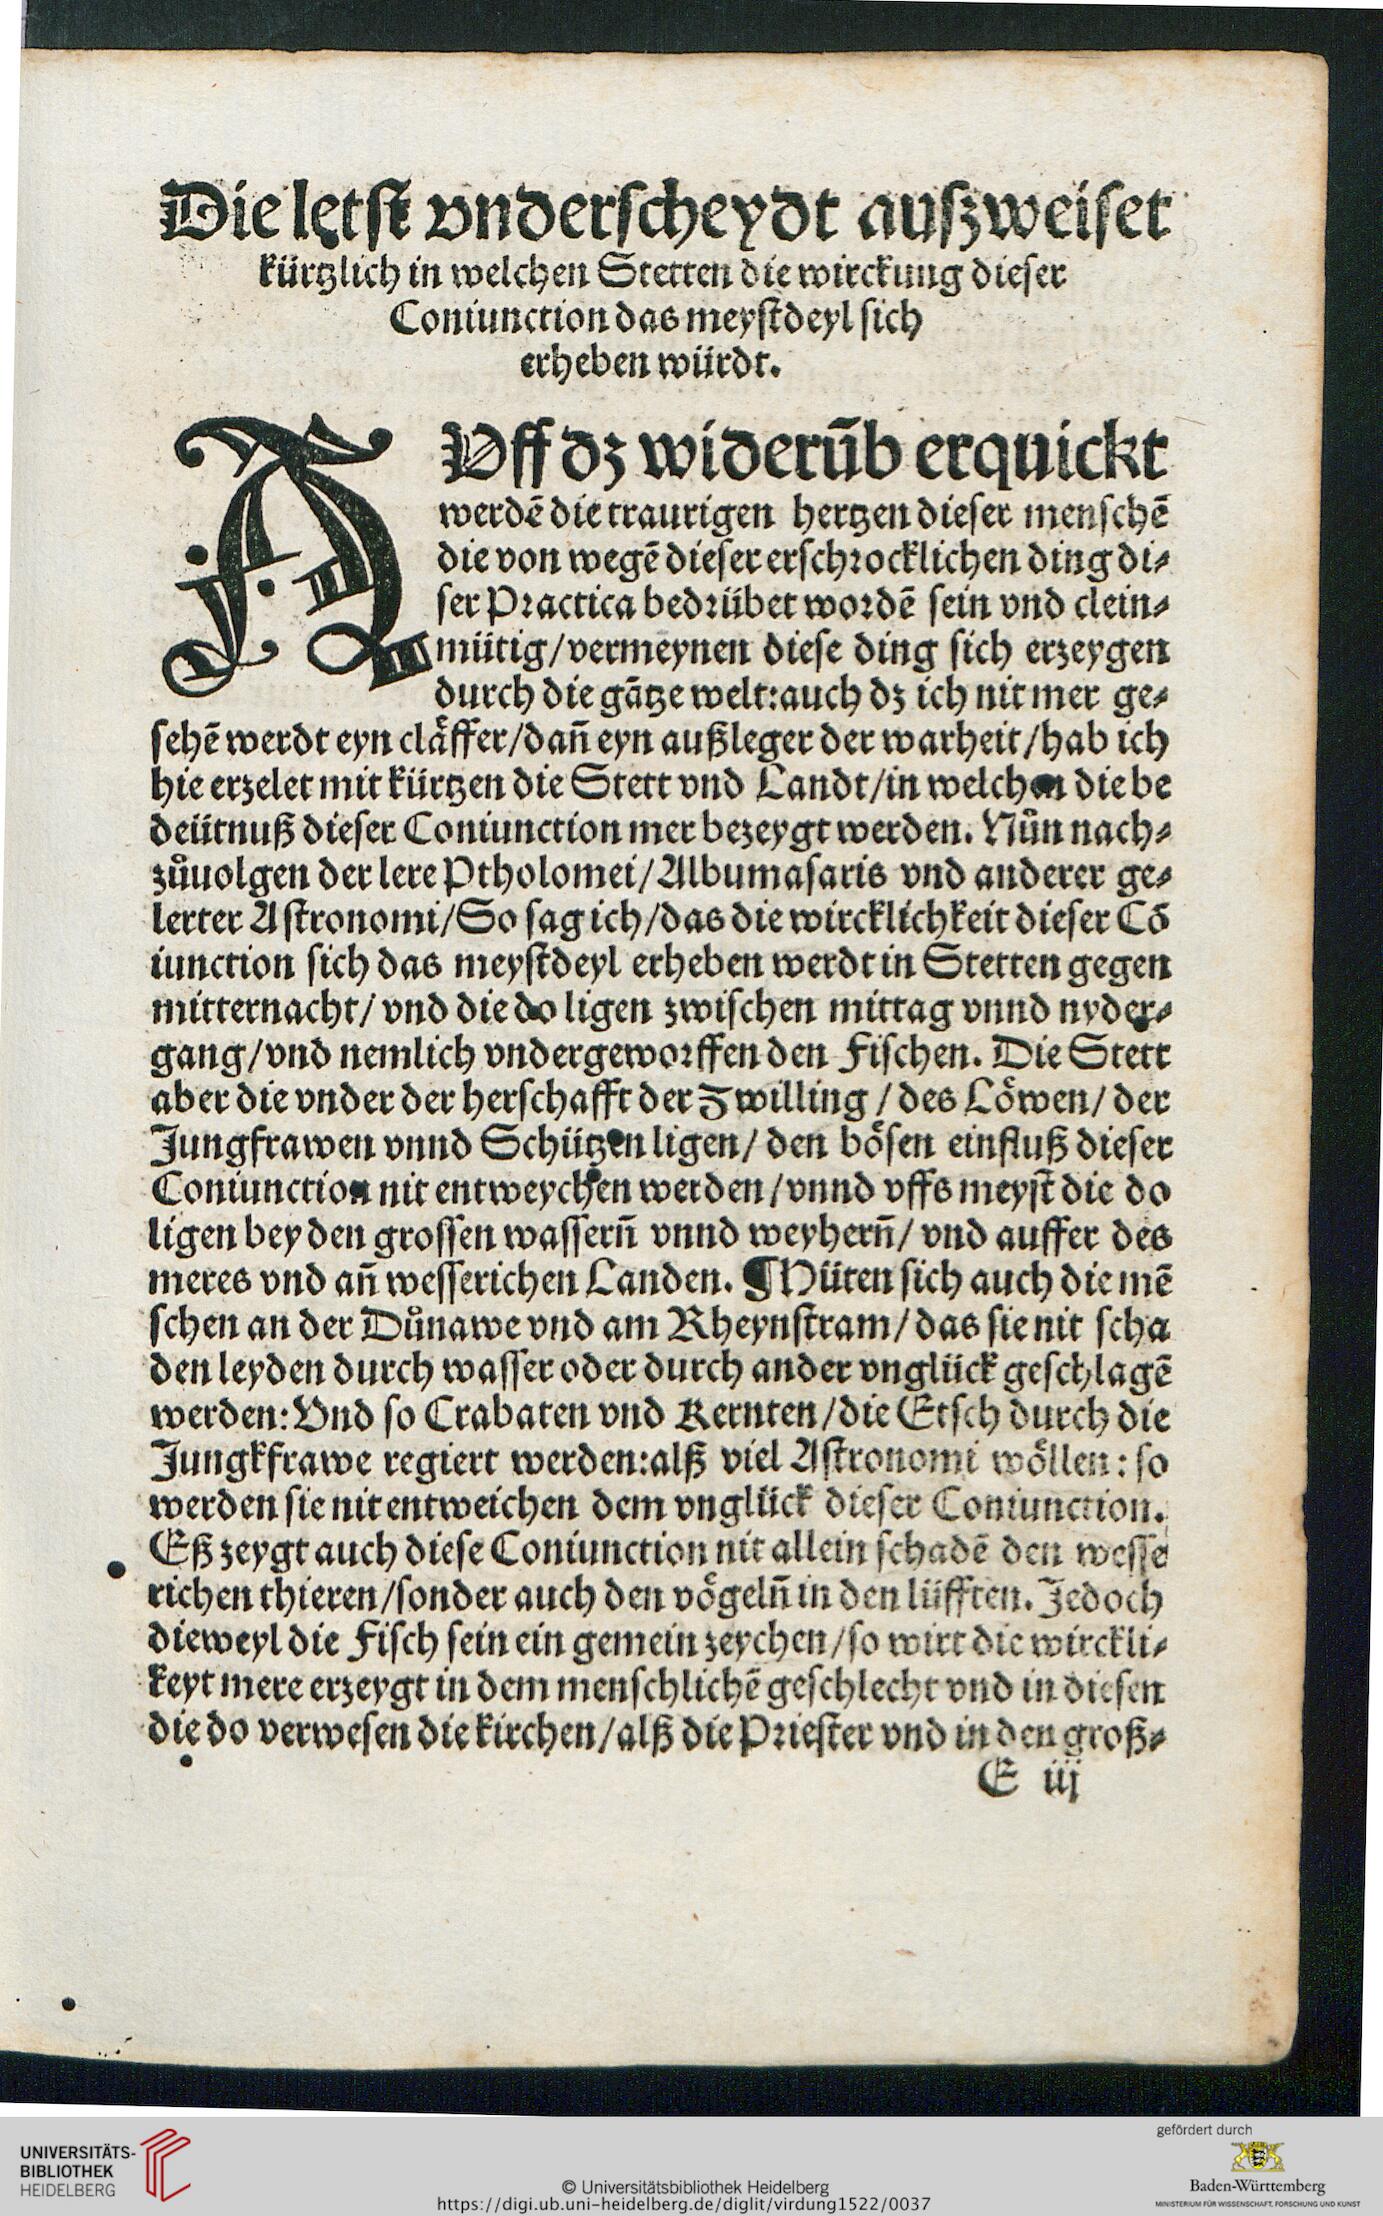 Die letst vnderscheydt auszweiset
kürtzlich in welchen Stetten die wirckung dieser
Coniunction das meystdeyl sich
erheben würdt.
AVff dz widerūb erquickt
werdē die traurigen hertzen dieser menschē
die von wegē dieser erschrocklichen ding di⸗
ser Practica bedrübet wordē sein vnd clein⸗
mütig/vermeynen diese ding sich erzeygen
durch die gātze welt:auch dz ich nit mer ge⸗
sehē werdt eyn cläffer/dan̄ eyn außleger der warheit/hab ich
hie erzelet mit kürtzen die Stett vnd Landt/in welchen die be
deütnuß dieser Coniunction mer bezeygt werden. Nůn nach⸗
zůuolgen der lere Ptholomei/Albumasaris vnd anderer ge⸗
lerter Astronomi/So sag ich/das die wircklichkeit dieser Cō
iunction sich das meystdeyl erheben werdt in Stetten gegen
mitternacht/ vnd die do ligen zwischen mittag vnnd nyder⸗
gang/vnd nemlich vndergeworffen den Fischen. Die Stett
aber die vnder der herschafft der Zwilling/des Löwen/ der
Jungfrawen vnnd Schützen ligen/ den bösen einfluß dieser
Coniunction nit entweychen werden/vnnd vffs meyst die do
ligen bey den grossen wassern̄ vnnd weyhern̄/ vnd auffer des
meres vnd an̄ wesserichen Landen. ¶Hüten sich auch die mē
schen an der Důnawe vnd am Rheynstram/das sie nit scha
den leyden durch wasser oder durch ander vnglück geschlagē
werden:Vnd so Crabaten vnd Kernten/die Etsch durch die
Jungkfrawe regiert werden:alß viel Astronomi wöllen: so
werden sie nit entweichen dem vnglück dieser Coniunction.
Eß zeygt auch diese Coniunction nit allein schadē den wesse
richen thieren/sonder auch den vögeln̄ in den lüfften. Jedoch
dieweyl die Fisch sein ein gemein zeychen/so wirt die wirckli⸗
keyt mere erzeygt in dem menschlichē geschlecht vnd in diesen
die do verwesen die kirchen/alß die Priester vnd in den groß⸗
E iij
UNIVERSITÄTS-
BIBLIOTHEK
HEIDELBERG
© Universitätsbibliothek Heidelberg
https://digi.ub.uni-heidelberg.de/diglit/virdung1522/0037
gefördert durch
Baden-Württemberg
MINISTERIUM FÜR WISSENSCHAFT, FORSCHUNG UND KUNST